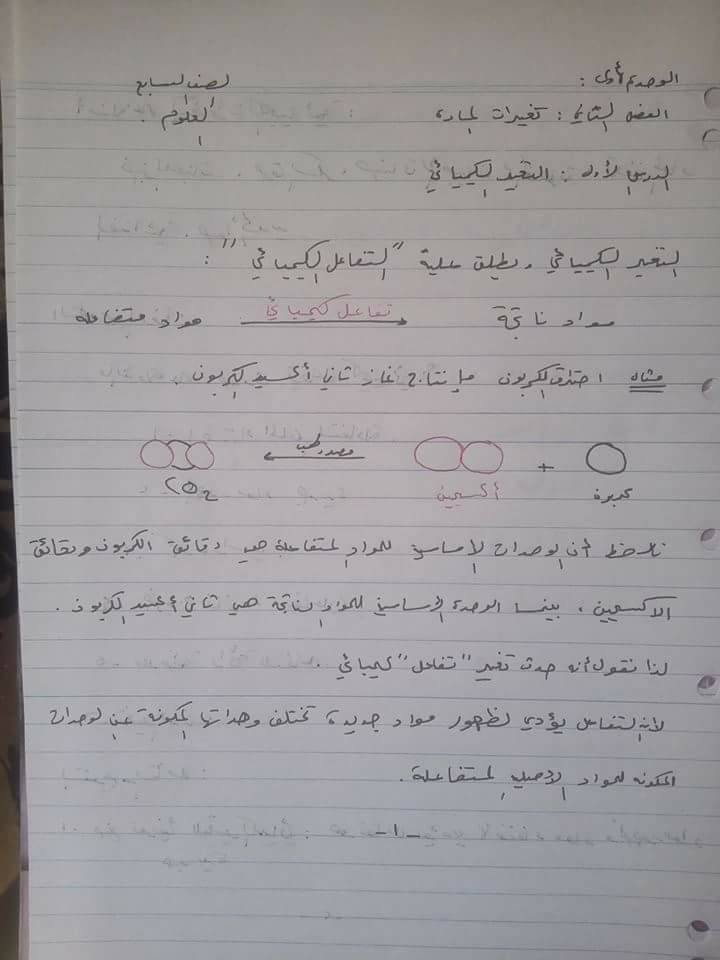 الوحدة الأولى :
الصف السابع
الفصل الثاني : تغيرات المادة
العلوم
الدرس الأول : التغير الكيميائي
التغير الكيميائي ويطلق عليه "التفاعل الكيميائي" :
مواد ناتجة تفاعل كيميائي مواد متفاعلة
مثال احتراق الكربون وإنتاج غاز ثاني أكسيد الكربون
+ مصدر لهب
كربون أكسجين CO2
نلاحظ أن الوحدات الأساسية للمواد المتفاعلة هي دقائق الكربون ودقائق
الاكسجين ، بينما الوحدة الأساسية للمواد الناتجة هي ثاني أكسيد الكربون .
لذا نقول أنه حدث تغير "تفاعل" كيميائي .
لأن التفاعل يؤدي لظهور مواد جديدة تختلف وحداتها المكونة عن الوحدات
المكونه للمواد الاصلية المتفاعلة .
-1-